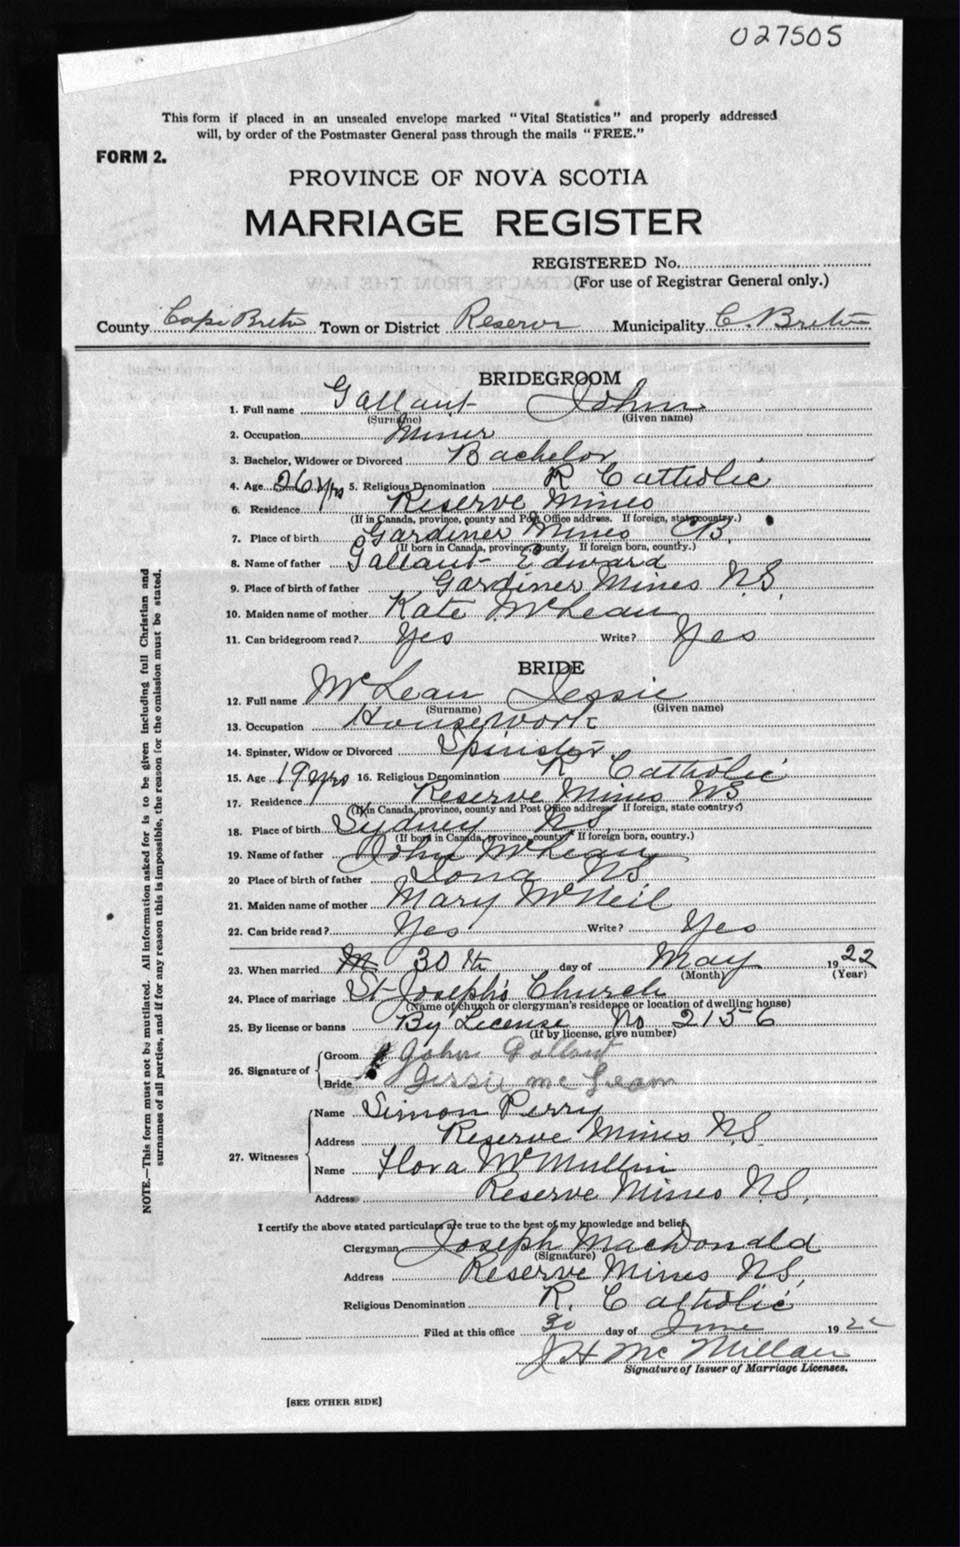 027505
This form if placed in an unsealed envelope marked "Vital Statistics" and properly addressed
will, by order of the Postmaster General pass through the mails "FREE."
FORM 2.
PROVINCE OF NOVA SCOTIA
MARRIAGE REGISTER
REGISTERED No.
(For use of Registrar General only.)
County Cape Breton Town or District Reserve Municipality C. Breton
BRIDEGROOM
1. Full name Gallant John
(Surname) (Given name)
2. Occupation Miner
3. Bachelor, Widower or Divorced Bachelor
4. Age 26 yrs 5. Religious Denomination R Catholic
6. Residence Reserve Mines
(If in Canada, province, county and Post Office address. If foreign, state country.)
7. Place of birth Gardiner Mines CB.
(If born in Canada, province, county. If foreign born, country.)
8. Name of father Gallant Edward
9. Place of birth of father Gardiner Mines N.S.
10. Maiden name of mother Kate McLean
11. Can bridegroom read? Yes Write? Yes
BRIDE
12. Full name McLean Jessie
(Surname) (Given name)
13. Occupation Housework
14. Spinster, Widow or Divorced Spinster
15. Age 19 yrs 16. Religious Denomination R Catholic
17. Residence Reserve Mines NS
(If in Canada, province, county and Post Office address. If foreign, state country.)
18. Place of birth Sydney N.S.
(If born in Canada, province, county. If foreign born, country.)
19. Name of father John McLean
20 Place of birth of father Iona NS
21. Maiden name of mother Mary McNeil
22. Can bride read? Yes Write? Yes
23. When married 30th day of May 1922
(Month) (Year)
24. Place of marriage St Joseph's Church
(Name of church or clergyman's residence or location of dwelling house)
25. By license or banns By License No 2156
(If by license, give number)
26. Signature of Groom John Gallant
Bride Jessie McLean
27. Witnesses Name Simon Perry
Address Reserve Mines N.S
Name Flora McMullin
Address Reserve Mines N.S.
I certify the above stated particulars are true to the best of my knowledge and belief,
Clergyman Joseph MacDonald
(Signature)
Address Reserve Mines N.S.
Religious Denomination R. Catholic
Filed at this office 30 day of June 1922
J H McMillan
Signature of Issuer of Marriage Licenses.
[SEE OTHER SIDE]
NOTE.—This form must not be mutilated. All information asked for is to be given including full Christian and
surnames of all parties, and if for any reason this is impossible, the reason for the omission must be stated.